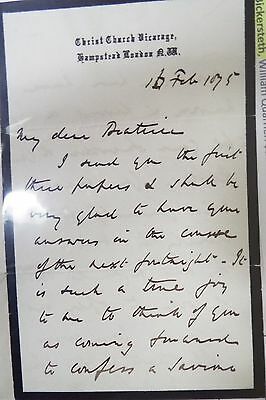 Christ Church Vicarage,
Hampstead London N.W.
Feb 1875
My dear Beatrice
I send you the first
three papers & shall be
very glad to have your
answers in the course
of the next fortnight - It
is such a true joy
to me to think of you
as coming forward
to confess a Saviour
Bickersteth,